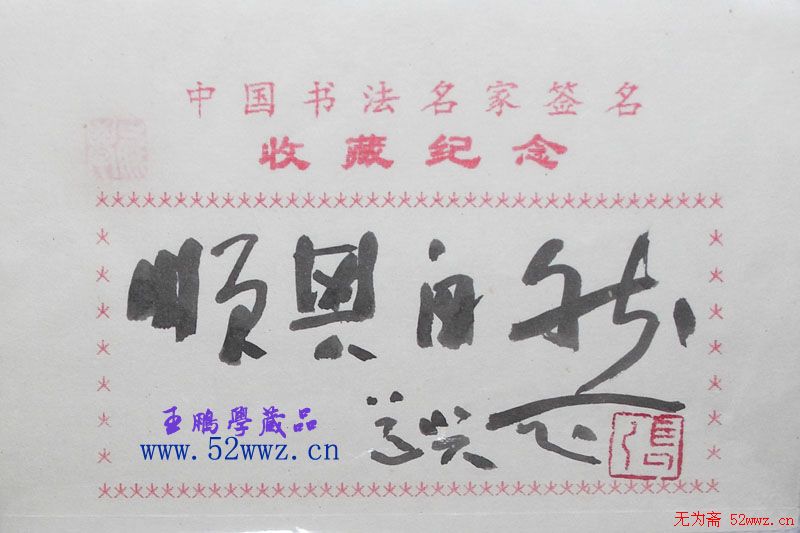 中国书法名家签名
收藏纪念
順興自然
道兴
張
王鹏學藏品
www.52wwz.cn
无为斋 52wwz.cn